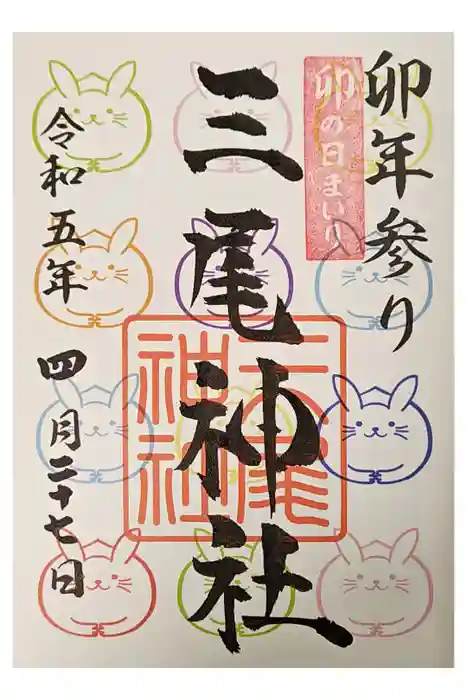 卯年参り
卯の日まいり
三尾神社
三尾神社
令和五年 四月二十七日